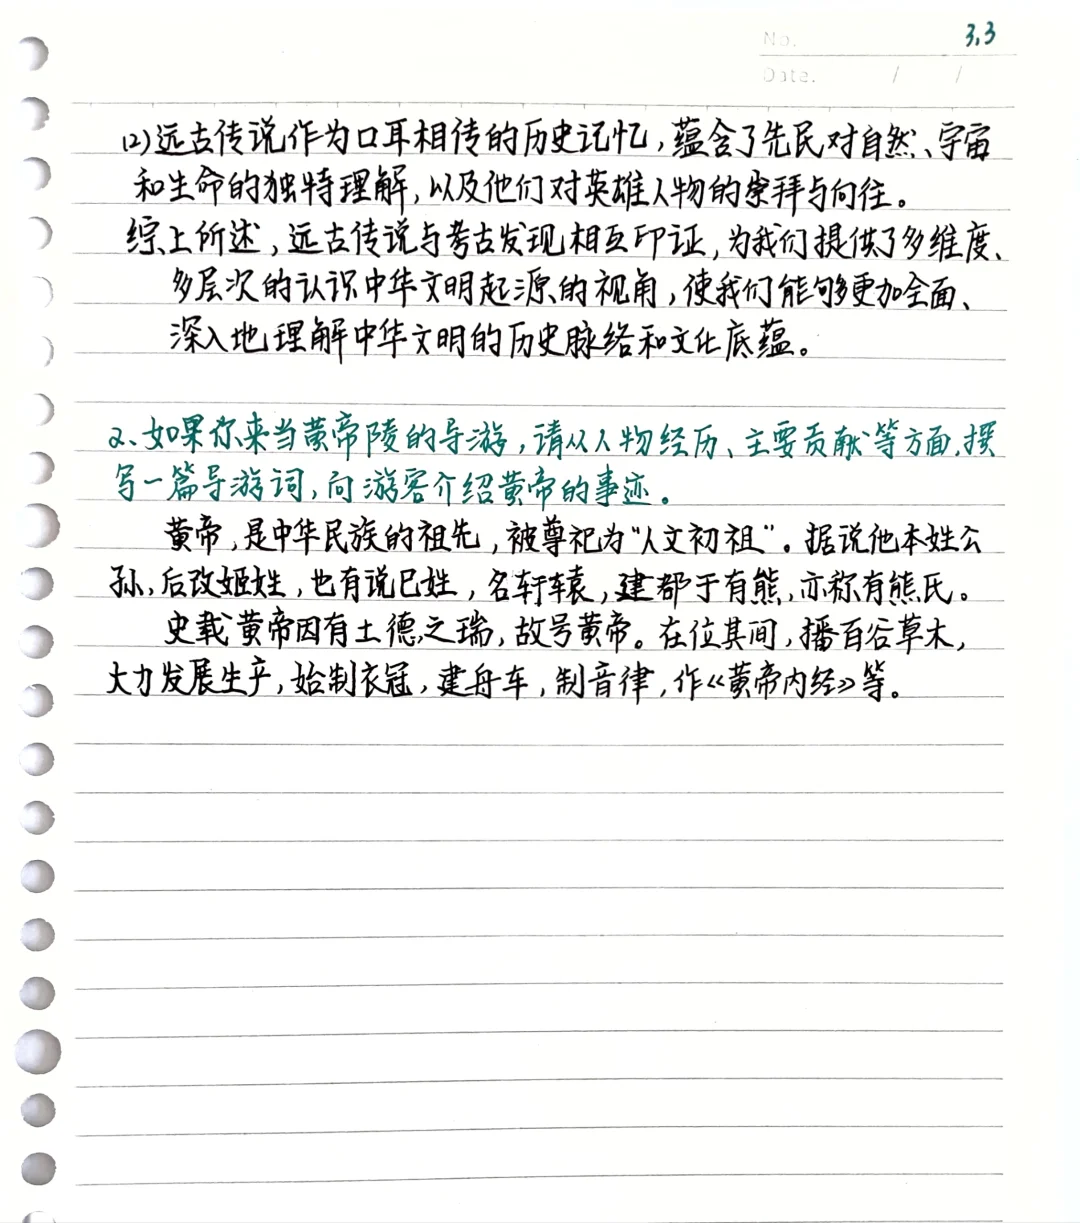 No. 3.3
Date. / /
(2)远古传说作为口耳相传的历史记忆,蕴含了先民对自然、宇宙
和生命的独特理解,以及他们对英雄人物的崇拜与向往。
综上所述,远古传说与考古发现相互印证,为我们提供了多维度、
多层次的认识中华文明起源的视角,使我们能够更加全面、
深入地理解中华文明的历史脉络和文化底蕴。
2、如果你来当黄帝陵的导游,请从人物经历、主要贡献等方面,撰
写一篇导游词,向游客介绍黄帝的事迹。
黄帝,是中华民族的祖先,被尊祀为“人文初祖”。据说他本姓公
孙,后改姬姓,也有说巳姓,名轩辕,建都于有熊,亦称有熊氏。
史载黄帝因有土德之瑞,故号黄帝。在位其间,播百谷草木,
大力发展生产,始制衣冠,建舟车,制音律,作《黄帝内经》等。